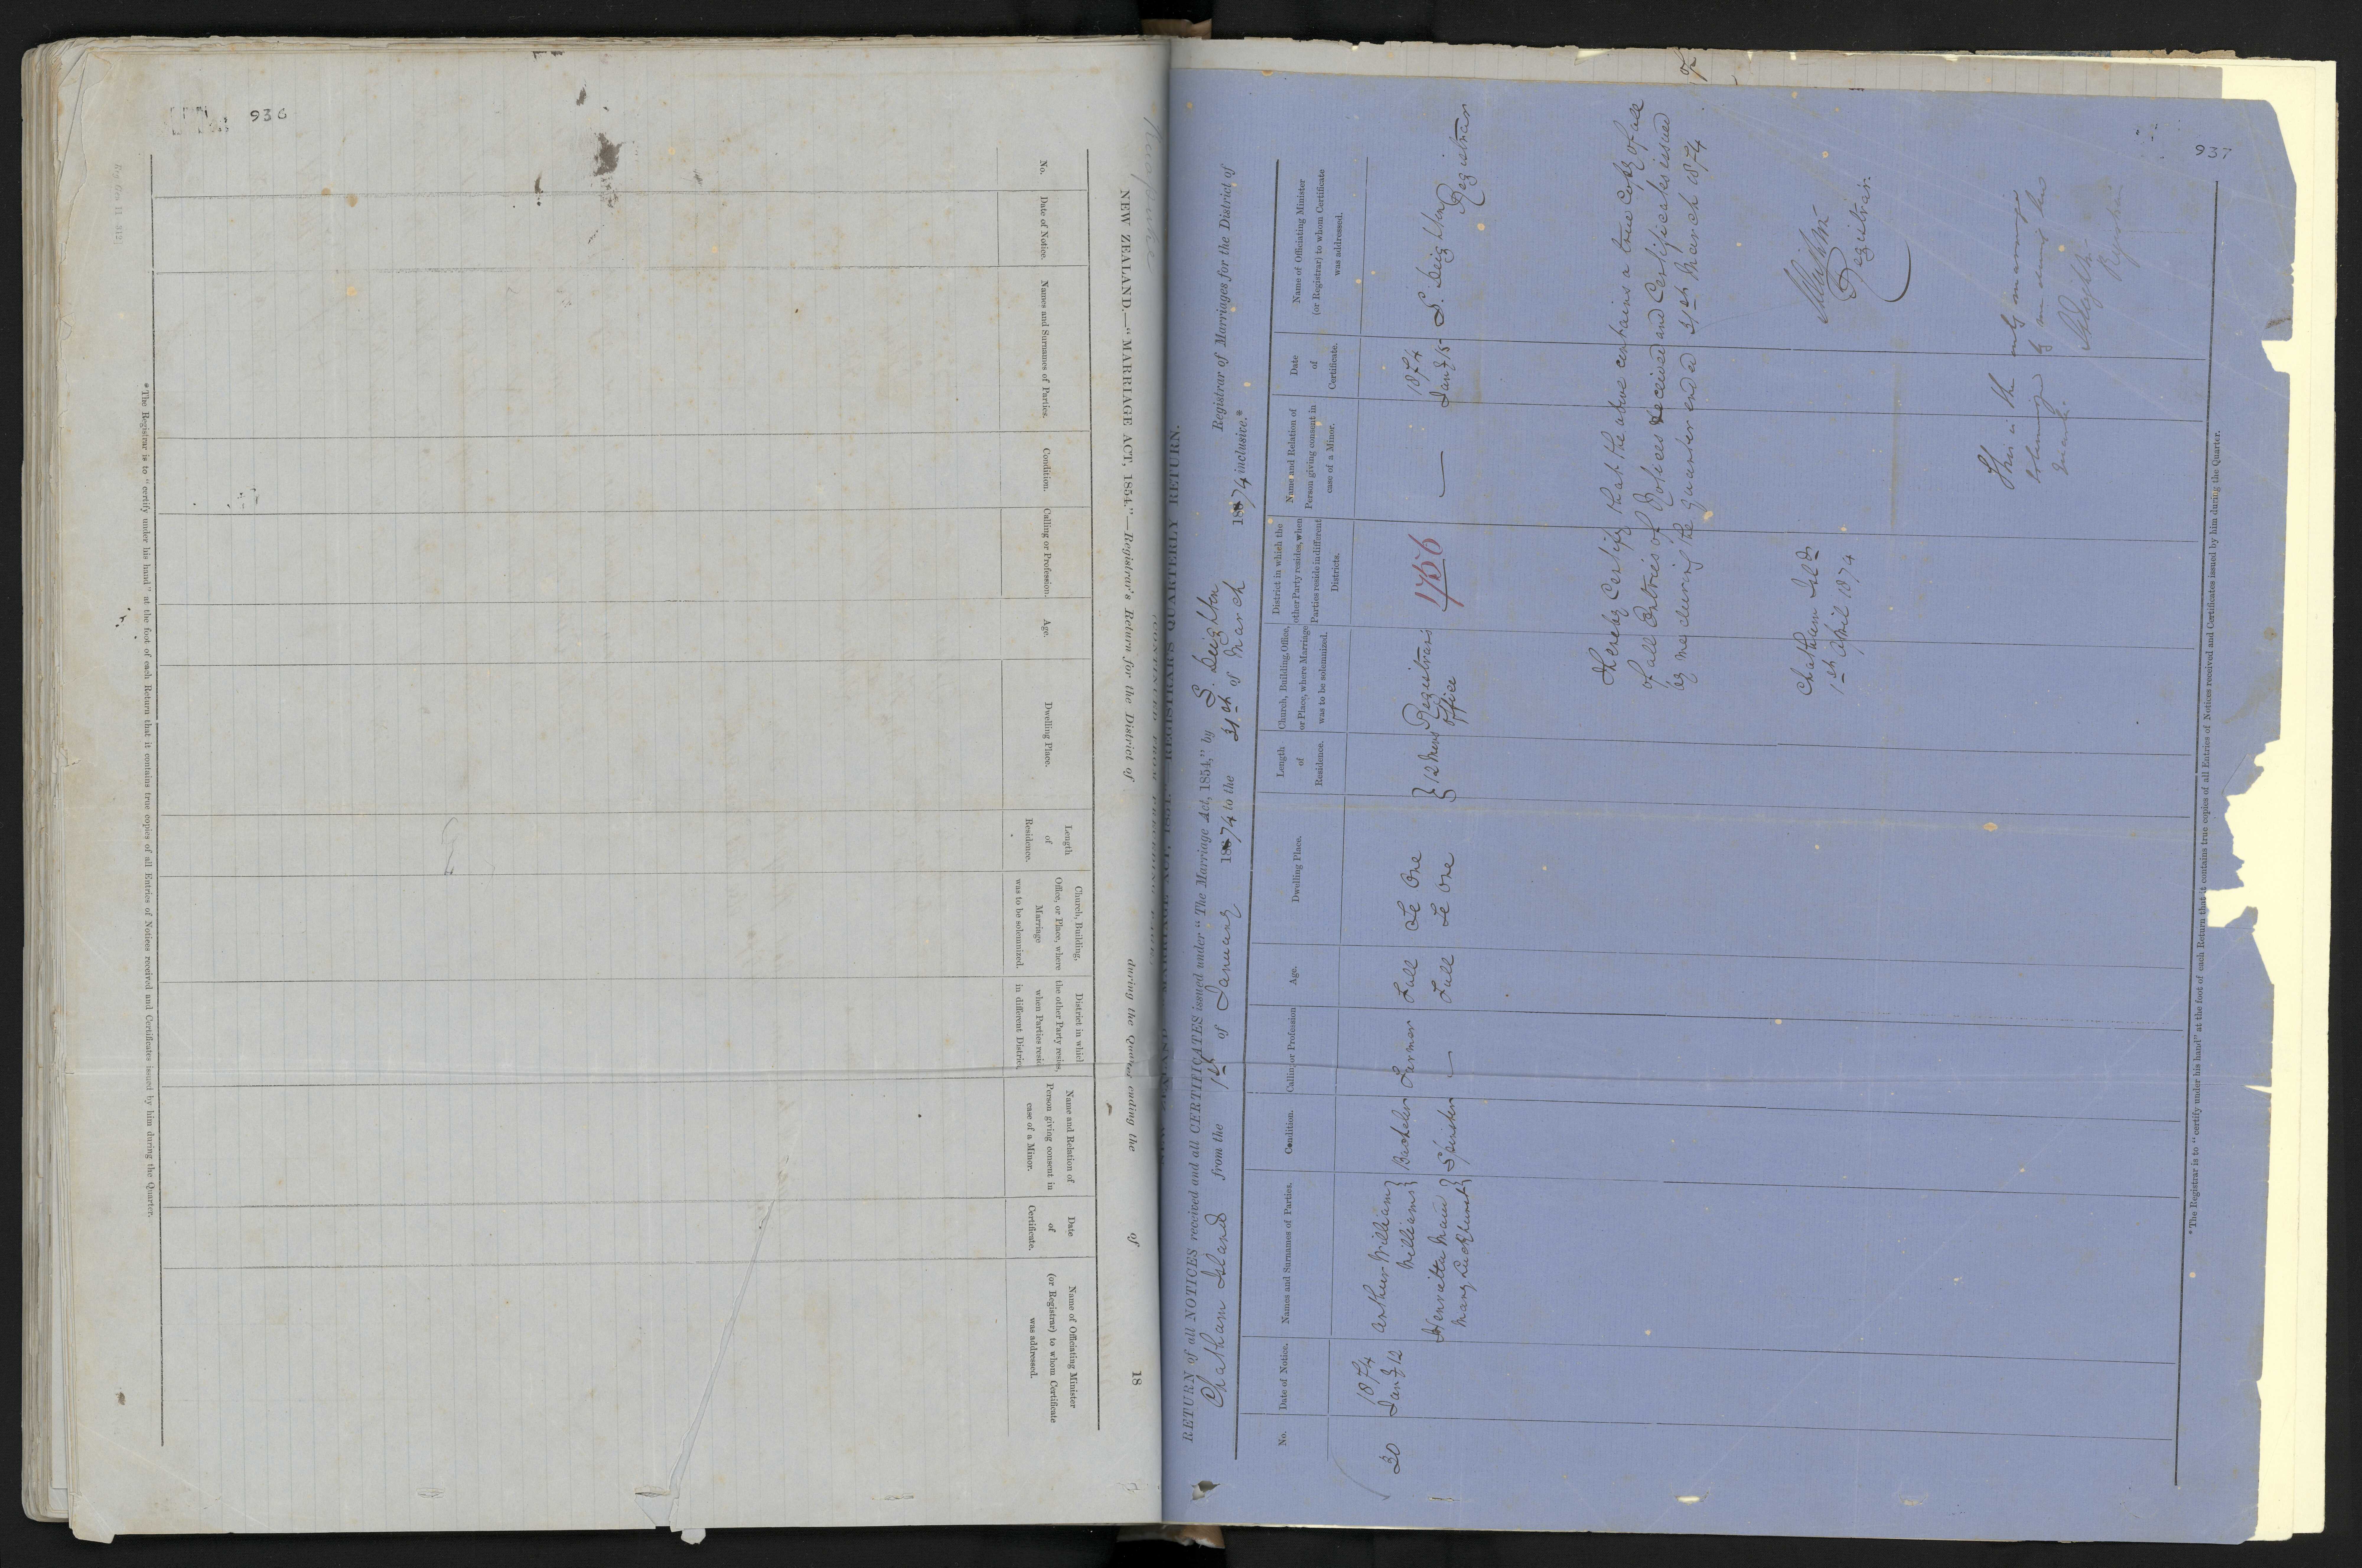 936
Naseby
NEW ZEALAND.—"MARRIAGE ACT, 1854."—Registrar's Return for the District of during the Quarter ending the of 18
No.
Date of Notice.
Names and Surnames of Parties.
Condition.
Calling or Profession.
Age.
Dwelling Place.
Length
of
Residence.
Church, Building,
Office, or Place, where
Marriage
was to be solemnized.
District in which
the other Party resides,
when Parties reside
in different District.
Name and Relation of
Person giving consent in
case of a Minor.
Date
of
Certificate.
Name of Officiating Minister
(or Registrar) to whom Certificate
was addressed.
*The Registrar is to "certify under his hand" at the foot of each Return that it contains true copies of all Entries of Notices received and Certificates issued by him during the Quarter.
937
NEW ZEALAND.—MARRIAGE ACT, 1854.—REGISTRAR'S QUARTERLY RETURN.
RETURN of all NOTICES received and all CERTIFICATES issued under "The Marriage Act, 1854," by S. Deighton Registrar of Marriages for the District of
Chatham Island from the 1st of January 1874 to the 31st of March 1874 inclusive.*
No.
Date of Notice.
Names and Surnames of Parties.
Condition.
Calling or Profession
Age.
Dwelling Place.
Length
of
Residence.
Church, Building, Office,
or Place, where Marriage
was to be solemnized.
District in which the
other Party resides, when
Parties reside in different
Districts.
Name and Relation of
Person giving consent in
case of a Minor.
Date
of
Certificate.
Name of Officiating Minister
(or Registrar) to whom Certificate
was addressed.
1874 1874
30 Jany 12 Arthur William Williams Bachelor Farmer Full Te One 12 Mens Registrars Office 1756 — Jany 15 S. Deighton Registrar
Henrietta Maui Mary Spinster — Full Te One
I Hereby Certify that the above contains a true Copy of all
of all Entries of Notices received and Certificates issued
by me during the Quarter ended 31st March 1874
S Deighton
Registrar
Chatham Islds
1st April 1874
This is the only marriage
by me during this
S Deighton
Registrar
*The Registrar is to "certify under his hand" at the foot of each Return that it contains true copies of all Entries of Notices received and Certificates issued by him during the Quarter.